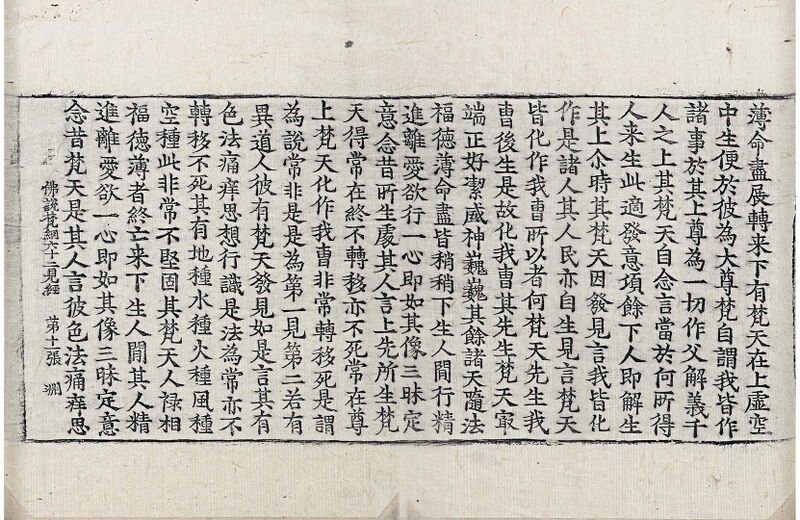 薄命盡展轉来下有梵天在上虛空
中生便於彼為大尊梵自謂我皆作
諸事於其上尊為一切作父解義千
人之上其梵天自念言當於何所得
人来生此適發意項餘下人即解生
其上尒時其梵天因發見言我皆化
作是諸人其人民亦自生見言梵天
皆化作我曹所以者何梵天先生我
曹後生是故化我曹其先生梵天㝡
端正好潔威神巍巍其餘諸天隨法
福德薄命盡皆稍稍下生人間行精
進離愛欲行一心即如其像三昧定
意念昔所生處其人言上先所生梵
天得常在終不轉移亦不死常在尊
上梵天化作我曹非常轉移死是謂
為說常非是是為第一見第二若有
異道人彼有梵天發見如是言其有
色法痛痒思想行識是法為常亦不
轉移不死其有地種水種火種風種
空種此非常不堅固其梵天人禄相
福德薄者終亡来下生人間其人精
進離愛欲一心即如其像三昧定意
念昔梵天是其人言彼色法痛痒思
佛說梵網六十二見經 第十張 淵